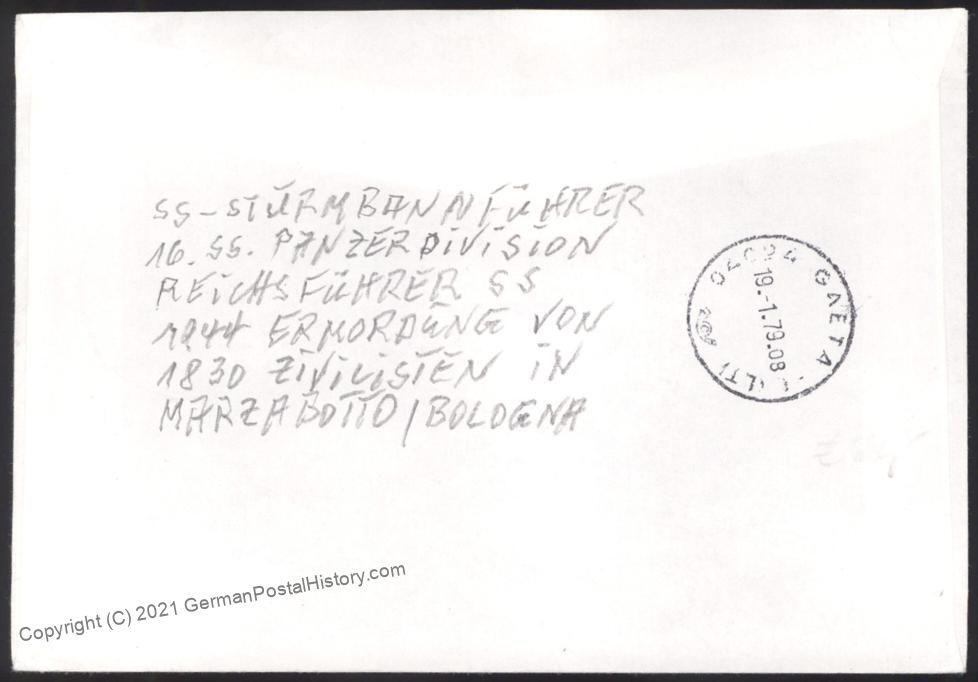 SS-STURMBANNFÜHRER
16. SS. PANZERDIVISION
REICHSFÜHRER SS
1944 ERMORDUNG VON
1830 ZIVILISTEN IN
MARZABOTTO/BOLOGNA
04024 GAETA
19.-1.79.08
(LT)
Copyright (C) 2021 GermanPostalHistory.com